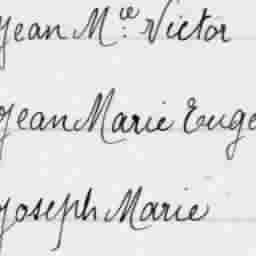 Jean M.ie Victor
Jean Marie Euge
Joseph Marie